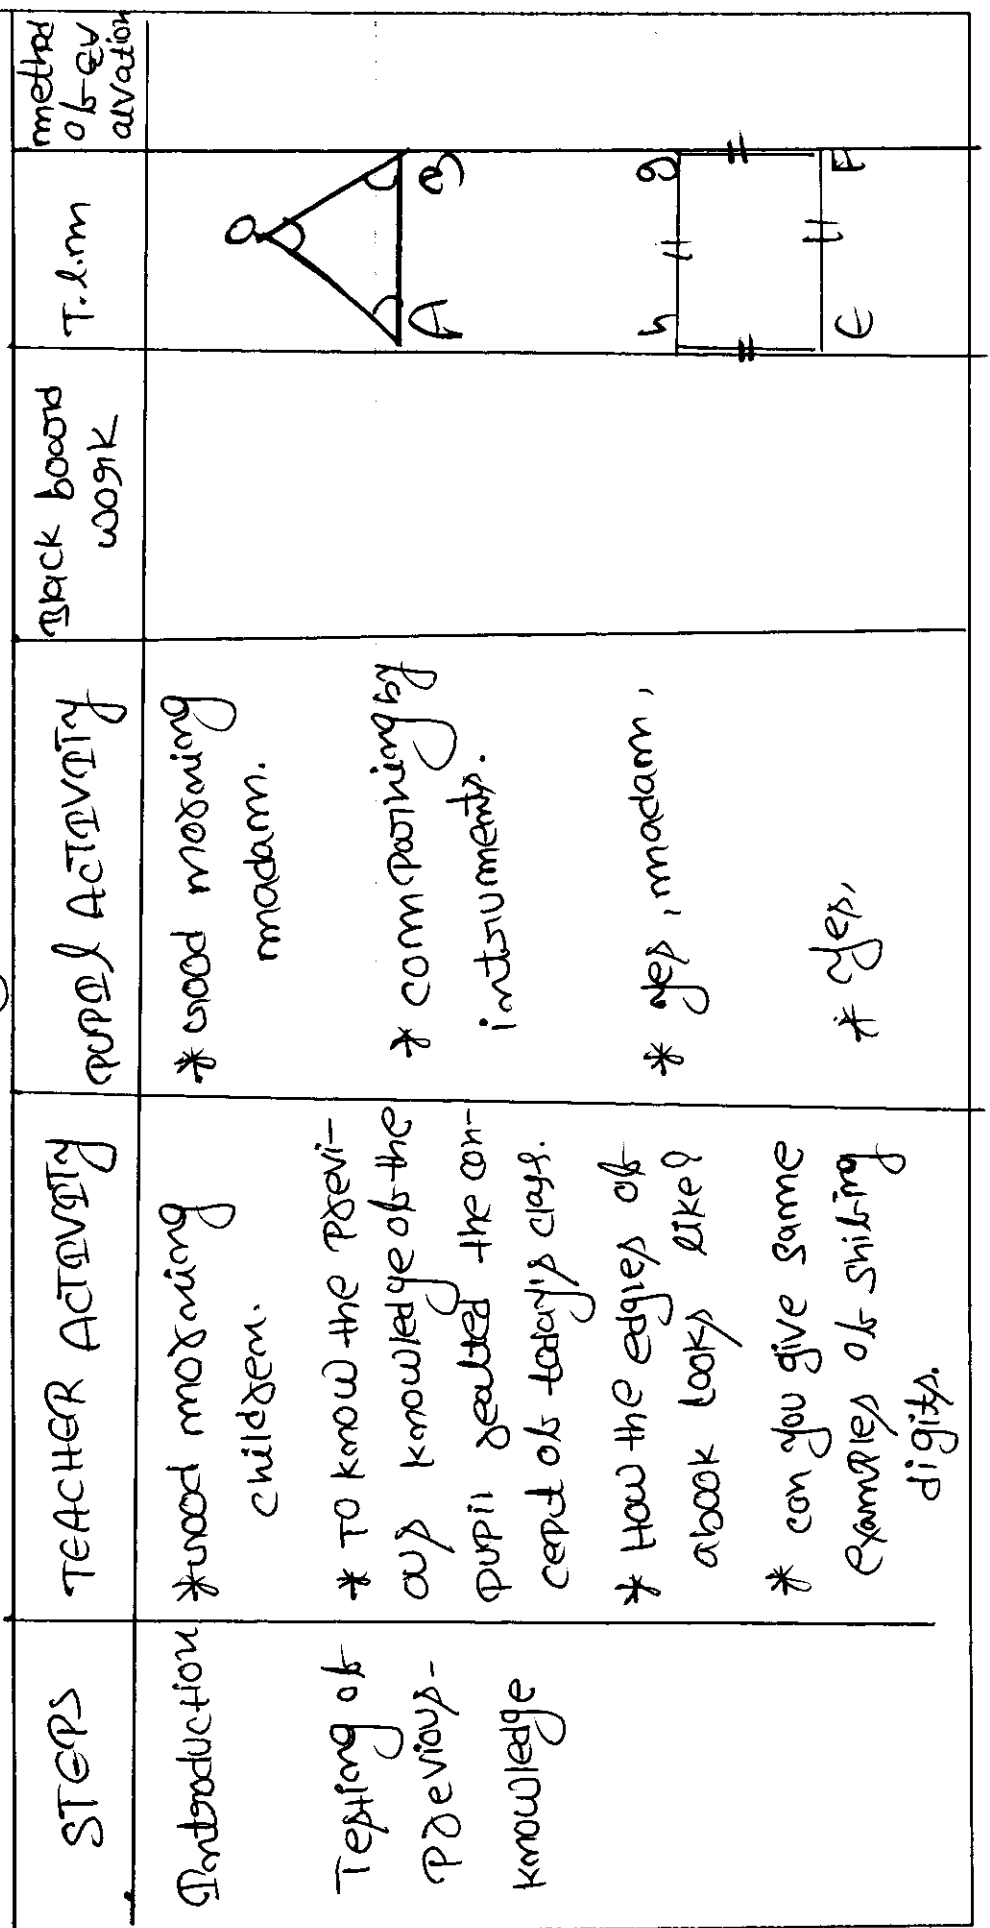 STEPS
TEACHER ACTIVITY
PUPIL ACTIVITY
Black board
work
T.l.m
method
of ev
alvation
Introduction
* Good morning
children.
* Good morning
madam.
Testing of
Previous-
knowledge
* To know the previ-
ous knowledge of the
pupil realted the con-
cept of today's class.
* comparing by
intsruments.
* How the edgies of
abook looks like?
* yes, madam,
* con you give same
examples of
digits.
* Yes,
O
A
B
h
g
E
F